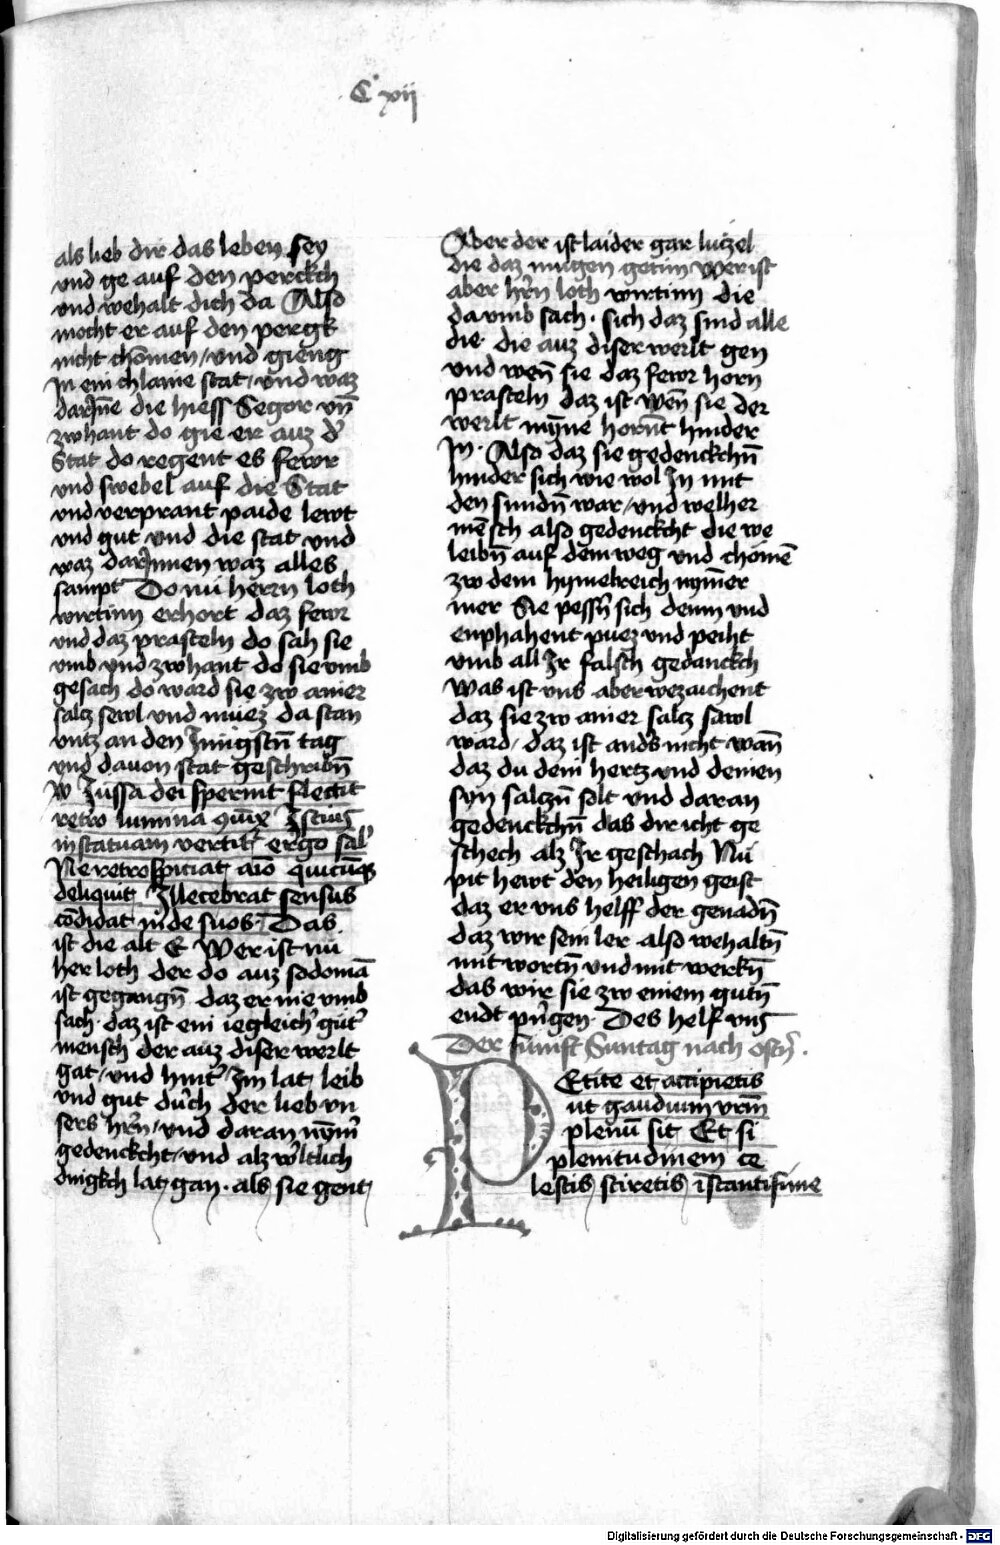 C xij
als lieb dir das leben sey
vnd ge auf den perckch
vnd wehalt dich da Also
mocht er auf den pergk
nicht chōmen / vnd gieng
Jn ein chlaine stat / vnd waz
darJñe die hiess Segor vñ
zwhant do gie er auz d'
Stat do regent es fewr
vnd swebel auf die Stat
vnd verprant paide lewt
vnd gut vnd die stat vnd
waz darJnnen waz alles
sampt Do nu herrn loth
wirtinn erhort daz fewr
vnd daz prasteln do sah sie
vmb vnd zwhant do sie vmb
gesach do ward sie zw ainer
salcz sewl vnd muez da stan
vntz an den Jungstn̄ tag
vnd dauon stat geschribn̄
Jussa dei spernit flectit
retro lumina
in statuam vertit' ergo sal'
Ne retrospiciat aīo quicūqz
deliquit Illecebrat sensus
cōdidat īn̄de suos Das
ist die alt E Wer ist nū
her loth der do auz sodomā
ist gegangn̄ daz er nie vmb
sach · daz ist ein iegleich' gūt'
mensch der auz diser werlt
gat / vnd hint' Jm lat leib
vnd gut durch der lieb vn
sers hr̄n / vnd daran nym̄'
gedenckcht / vnd alz w'ltlich
dingkch lat gan · als sie gent
Aber der ist laider gar luczel
die daz mugen getūn Wer ist
aber hr̄n loth wirtinn die
da vmb sach · sich daz sind alle
die · die auz diser werlt gen
vnd wen̄ sie daz fewr horn
prasteln daz ist wen̄ sie der
werlt mȳne hornt hinder
Jn · Also daz sie gedenckchn̄
hinder sich wie wol Jn mit
den sundn̄ war / vnd welher
mēsch also gedenckcht die we
leibn̄ auf dem weg vnd chōmē
zw dem hymelreich nym̄er
mer Sie pessn̄ sich denn vnd
enphahent puez vnd peiht
vmb all Jr falsch gedanckch
Was ist vns aber wezaichent
daz sie zw ainer salcz sawl
ward / daz ist and's nicht wān
daz du dein hertz vnd deinen
syn salczn̄ solt vnd daran
gedenckchn̄ das dir icht ge
schech alz Jr geschach Nū
pit hewt den heiligen geist
daz er vns helff der genadn̄
daz wir sein ler also wehaltn̄
mit wortn̄ vnd mit werkn̄
das wir sie zw einem gutn̄
endt pr̄gen · Des helf vns
Der fumft Suntag nach ostn̄ .
PEtite et accipietis
ut gaudium vrm̄
plenū sit Et si
plenitudinem ce
lestis sciretis īstantissime
Digitalisierung gefördert durch die Deutsche Forschungsgemeinschaft - DFG